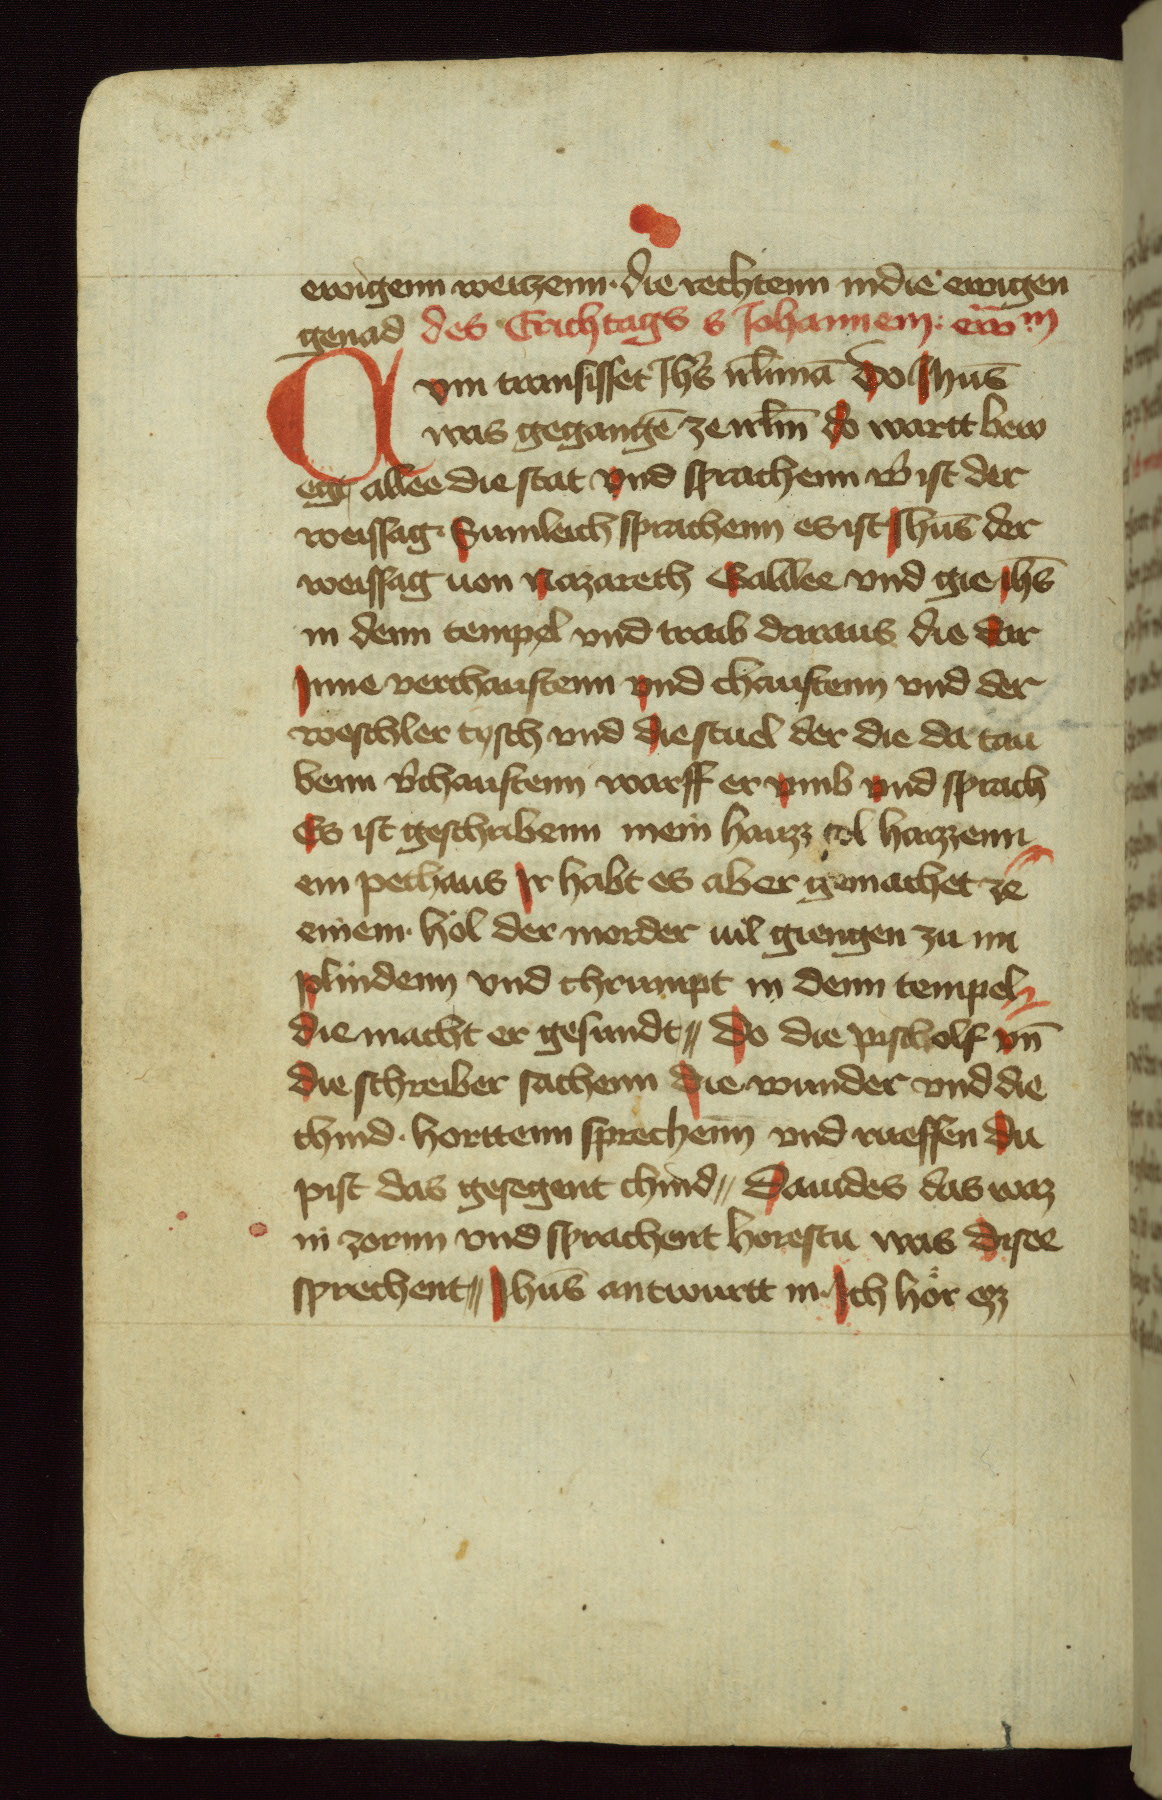 ewigenn weitzenn · die rechtenn in die ewigen
genad des Erichtags s Johannem : ew̄m
Cum transisset Jhs̄ irl̄imā Do Jhus̄
was gegangē ze irl̄m do wartt bew
egt allee die stat vnd sprachenn w̄ ist der
weissag · Sumleich sprachenn es ist Jhus̄ der
weissag uon Nazareth Gallilee vnd gie Jhs̄
in denn tempel vnd traib daraus die dar
Jnne verchauftenn vnd chauftenn vnd der
weschler tysch vnd die stuel der die da tau
benn v̄chauftenn warff er vmb vnd sprach
Es ist geschribenn mein hauzz sol haizzenn
ein pethaus Jr habt es aber gemachet ze
einem · hol der morder uil giengen zu im
plindenn vnd chrumpt in denn tempel
die macht er gesundt // Do die pischolf vn̄
die schreiber sachenn die wunder vnd die
chind · horttenn sprechenn̄ vnd rueffen du
pist das gesegent chind // Dauides das waz
in zornn vnd sprachent horestu was disee
sprechent // Jhus̄ antwurtt in · Jch hör ezz